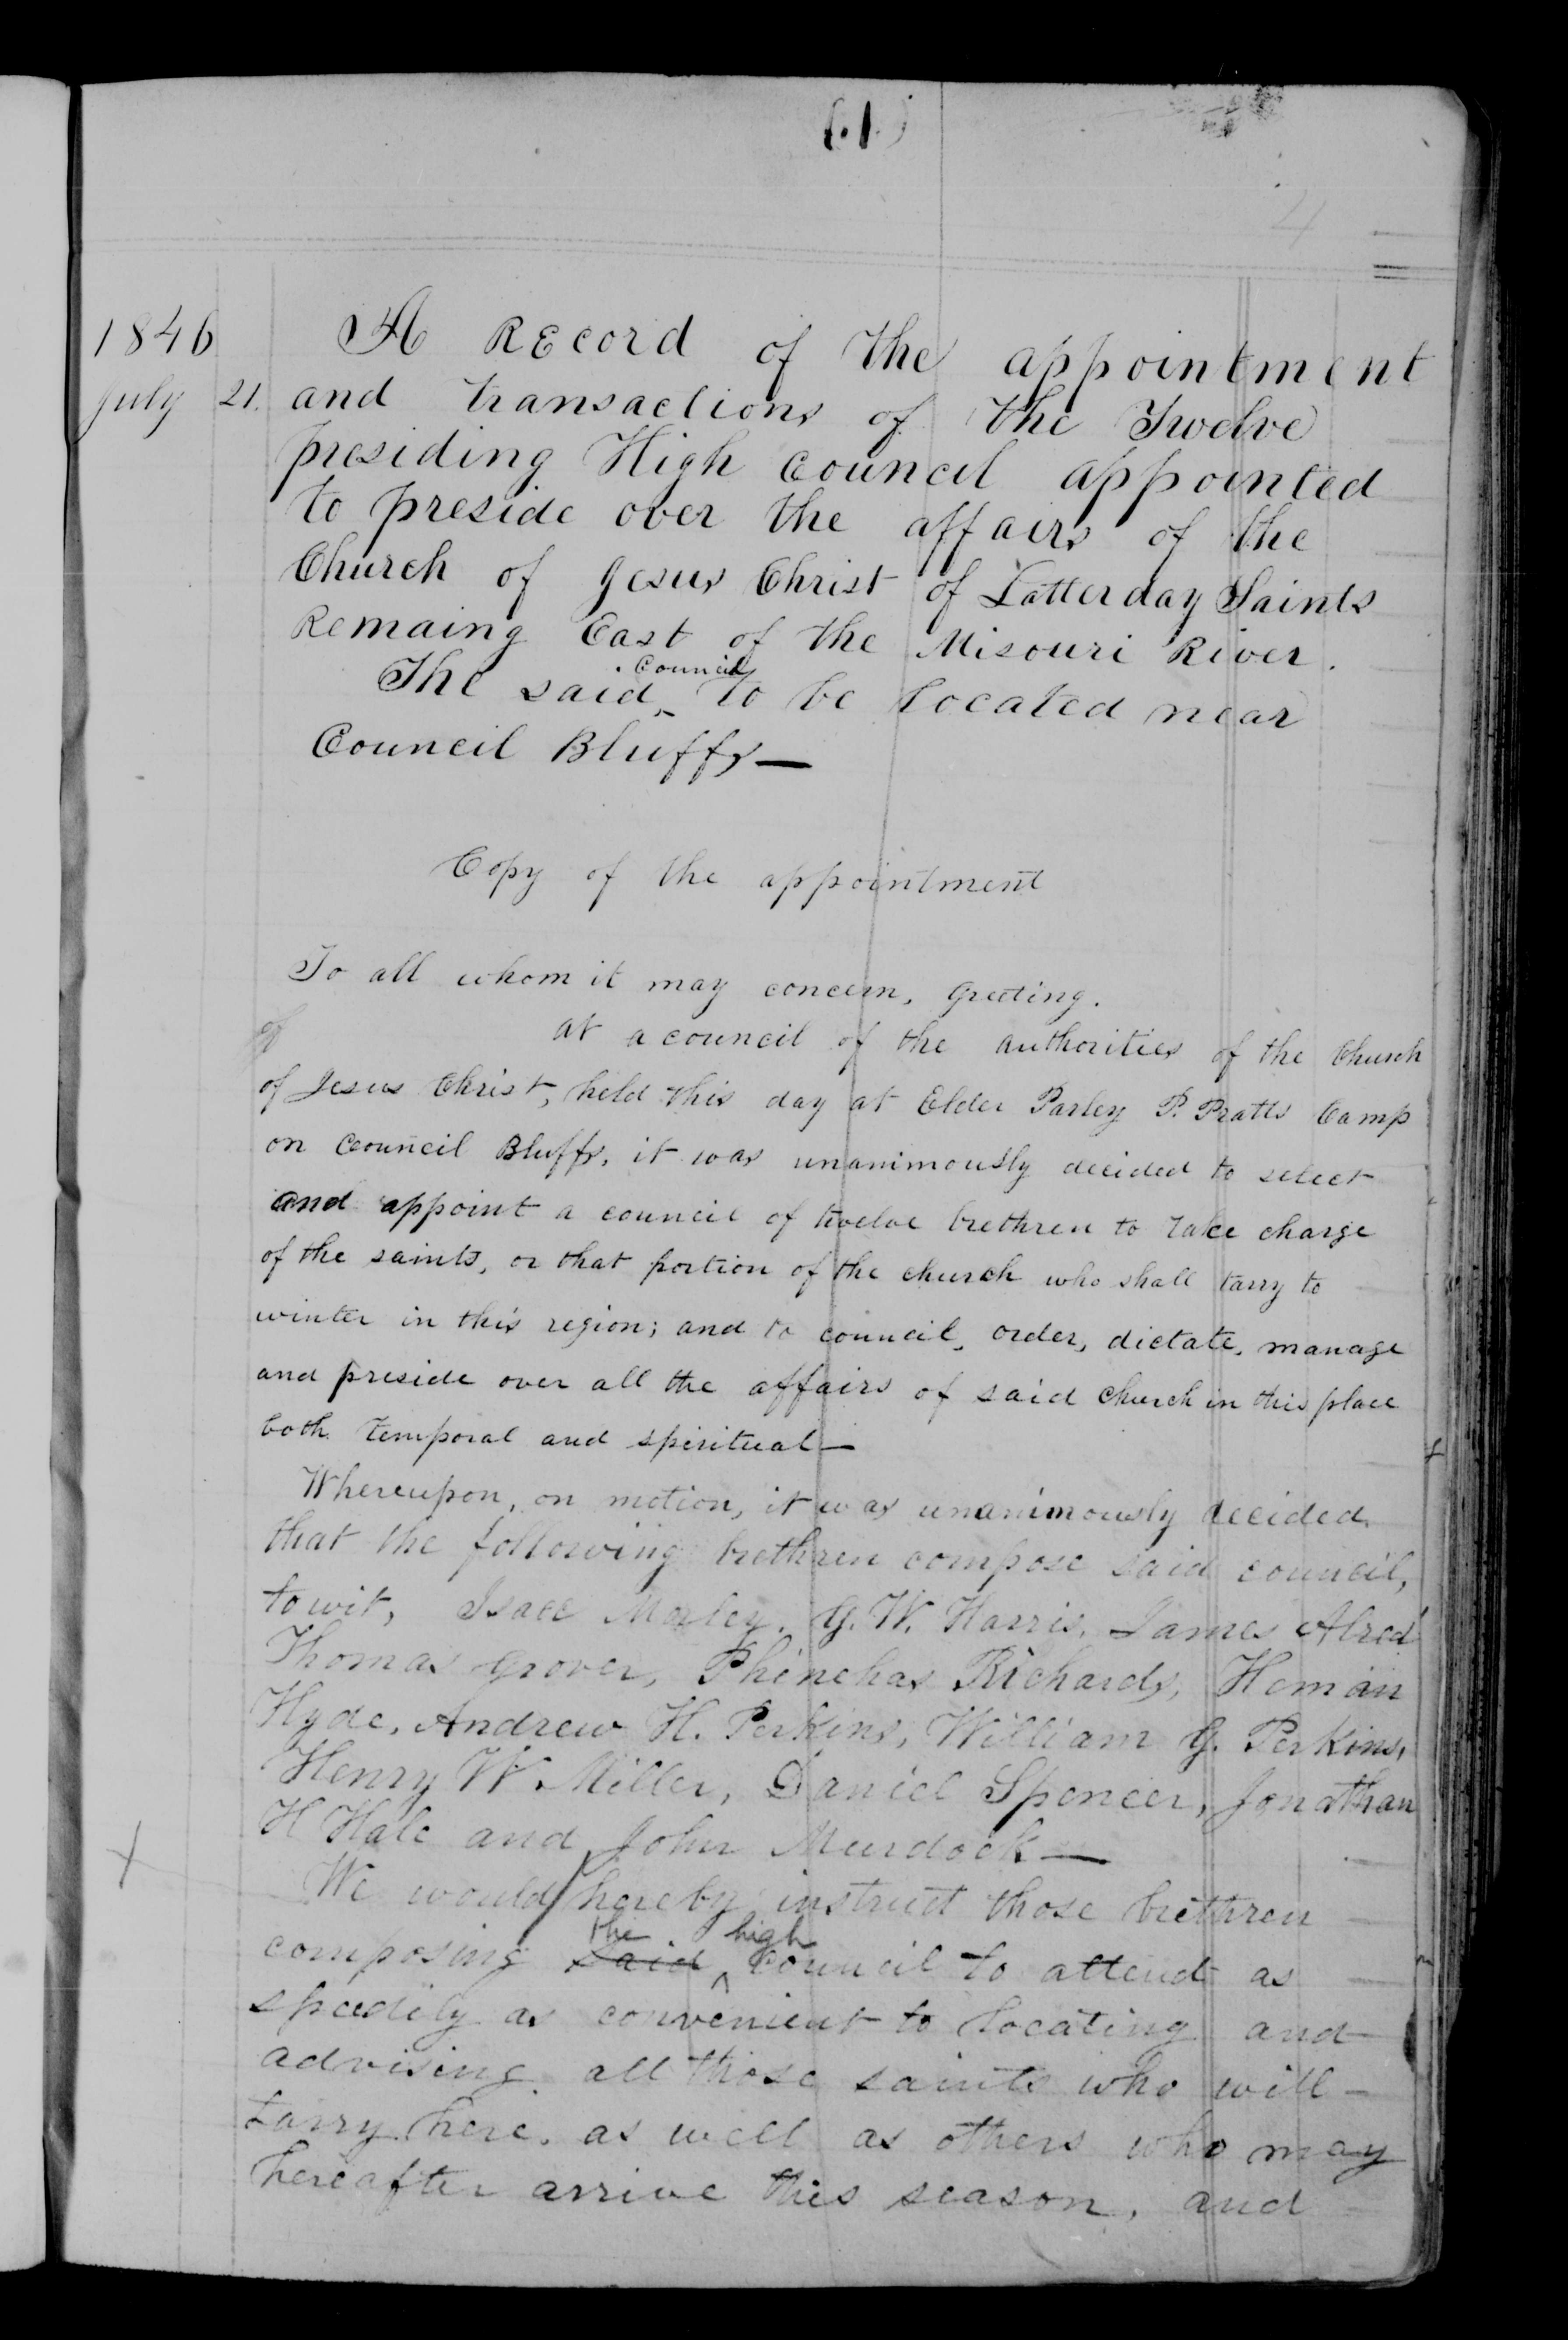 (.1.)
4
1846
July 21.
A Record of the appointment
and transactions of the Twelve
presiding High Council appointed
to preside over the affairs of the
Church of Jesus Christ of Latterday Saints
Remaing East of the Misouri River.
The said ^Council to be located near
Council Bluffs—
Copy of the appointment
To all whom it may concern, Greeting.
of
at a council of the authorities of the Church
of Jesus Christ, held this day at Elder Parley P. Pratts Camp
on Council Bluffs, it was unanimously decided to select
and appoint a council of twelve brethren to take charge
of the saints, or that portion of the church who shall tarry to
winter in this region; and to council, order, dictate, manage
and preside over all the affairs of said Church in this place
both temporal and spiritual—
Whereupon, on motion, it was unanimously decided
that the following brethren compose said council,
to wit, Isacc Morley, G. W. Harris, James Alred
Thomas Grover, Phinehas Richards, Heman
Hyde, Andrew H. Perkins, William G. Perkins,
Henry W. Miller, Daniel Spencer, Jonathan
H Hale and John Murdock—
We would hereby instruct those brethren
composing said the ^high council to attend as
speedily as convenient to locating and
advising all those saints who will
tarry here, as well as others who may
hereafter arrive this season, and